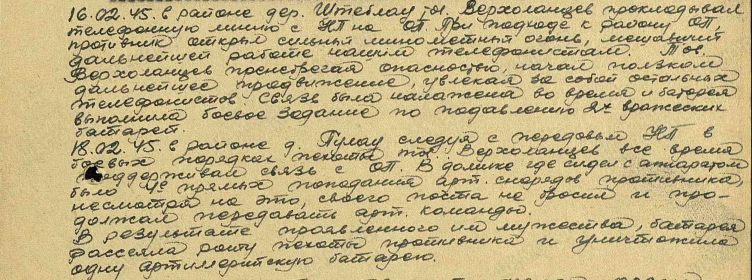 16.02.45. в районе дер. Штеблау тов. Верхоланцев прокладывал
телефонную линию с НП на ОП. При подходе к району ОП,
противник открыл сильный минометный огонь, мешавший
дальнейшей работе нашим телефонистам. Тов.
Верхоланцев пренебрегая опасностью, начал ползком
дальнейшее продвижение, увлекая за собой остальных
телефонистов. Связь была налажена во время и батарея
выполнила боевое задание по подавлению 2х вражеских
батарей.
18.02.45. в районе д. Гулау следуя с передовым НП в
боевых порядках пехоты тов. Верхоланцев все время
поддерживал связь с ОП. В домике где сидел с аппаратом
было 4е прямых попадания арт. снарядов противника,
несмотря на это, своего поста не бросил и про-
должал передавать арт. команды.
В результате проявленного им мужества, батарея
рассеяла роту пехоты противника и уничтожила
одну артиллерийскую батарею.